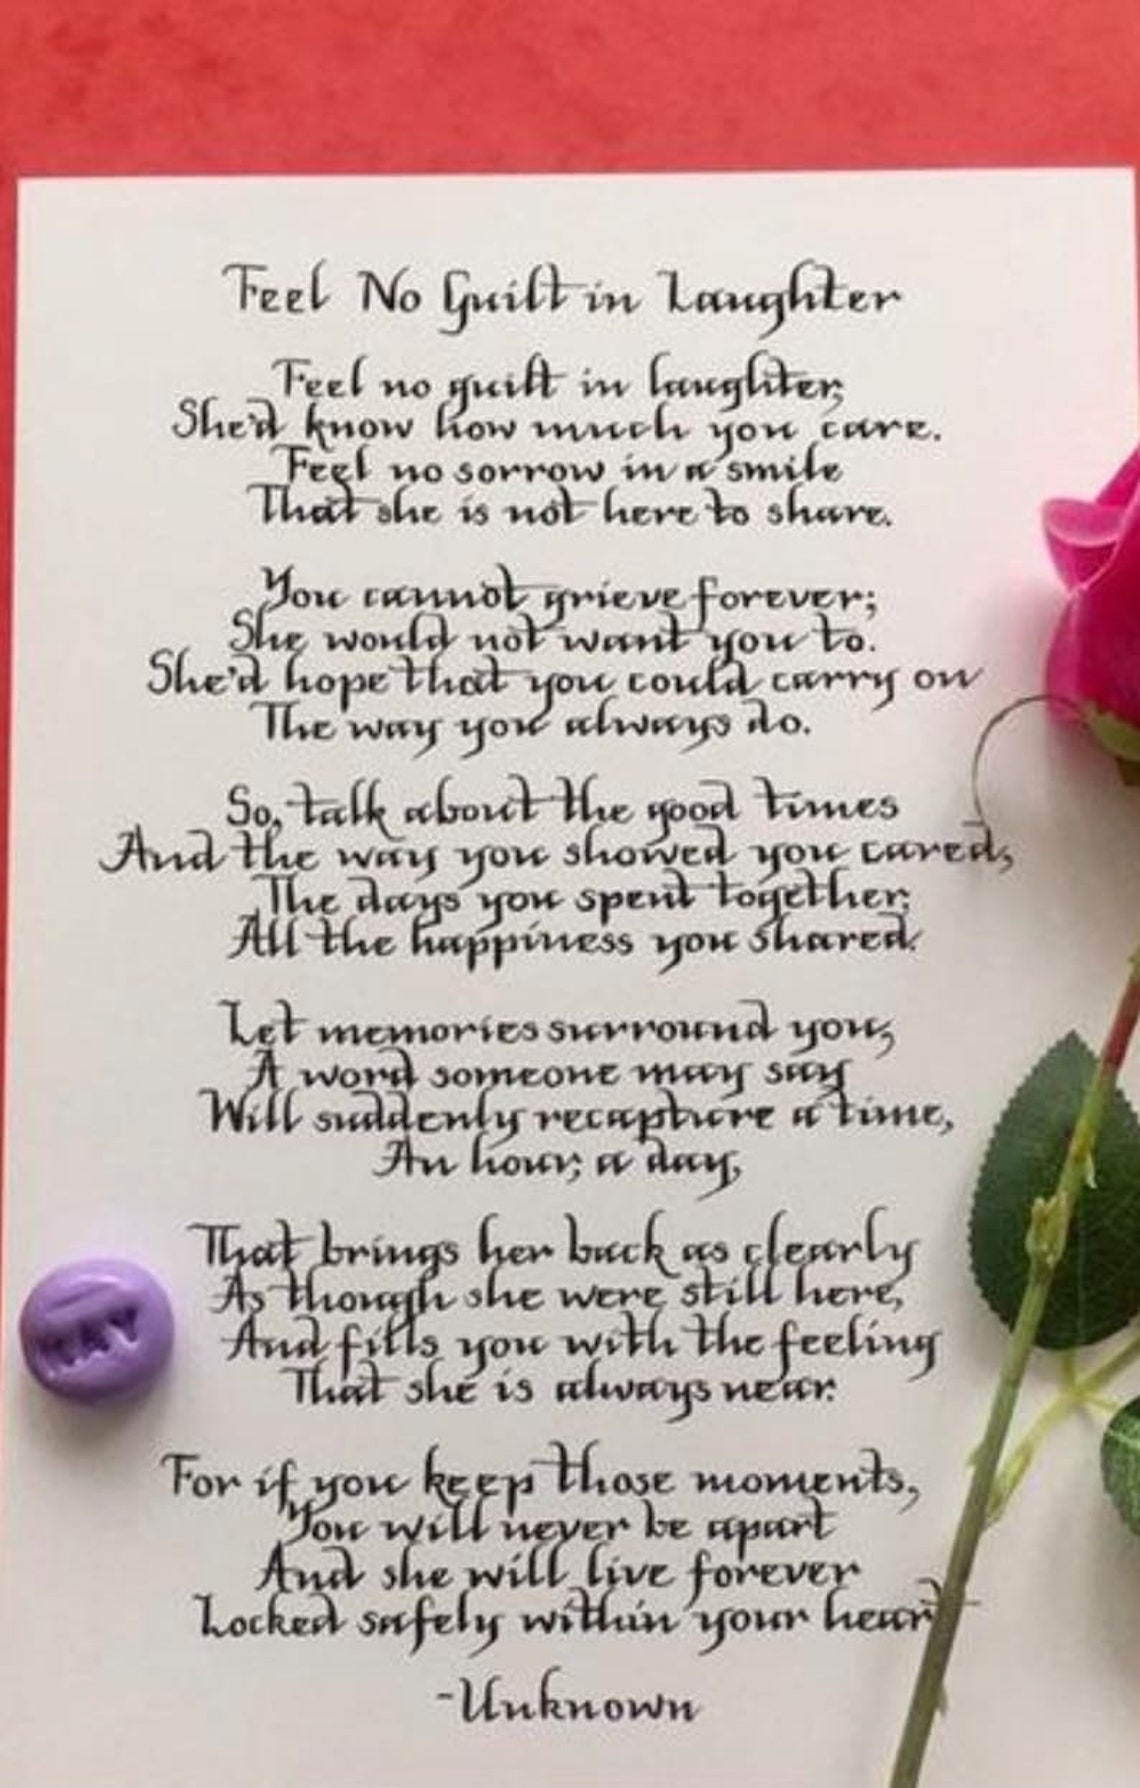 Feel No Guilt in Laughter
Feel no guilt in laughter,
She'd know how much you care.
Feel no sorrow in a smile
That she is not here to share.
You cannot grieve forever;
She would not want you to.
She'd hope that you could carry on
The way you always do.
So, talk about the good times
And the way you showed you cared,
The days you spent together,
All the happiness you shared.
Let memories surround you,
A word someone may say
Will suddenly recapture a time,
An hour, a day,
That brings her back as clearly
As though she were still here,
And fills you with the feeling
That she is always near.
For if you keep those moments,
You will never be apart
And she will live forever
Locked safely within your heart
-Unknown